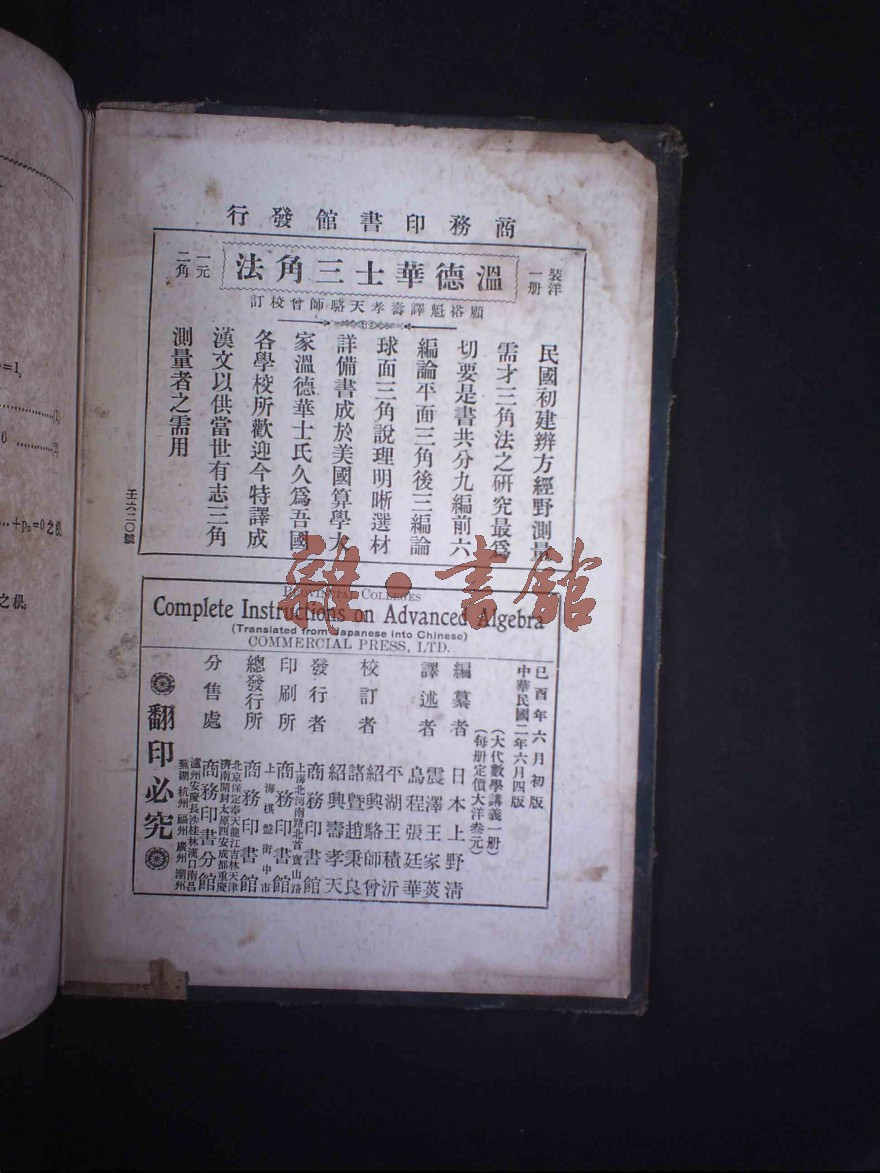 商務印書館發行
洋裝一册
溫德華士三角法
一元二角
顧裕魁譯壽孝天駱師曾校訂
民國初建辨方經野測量
需才三角法之研究最爲
切要是書共分九編前六
編論平面三角後三編論
球面三角說理明晰選材
詳備書成於美國算學大
家溫德華士氏久爲吾國
各學校所歡迎今特譯成
漢文以供當世有志三角
測量者之需用
壬六二〇號
PROVINCIAL COLLEGES
Complete Instructions on Advanced Algebra
(Translated from Japanese into Chinese)
COMMERCIAL PRESS, LTD.
己酉年六月初版
中華民國二年六月四版
(大代數學講義一册)
(每册定價大洋叁元)
編纂者 日本上野清
譯述者 震澤王家菼
烏程張廷華
平湖王積沂
校訂者 紹興駱師曾
諸暨趙秉良
紹興壽孝天
發行者 商務印書館
上海北河南路北首寶山路
印刷所 商務印書館
上海棋盤街中市
總發行所 商務印書館
北京保定奉天龍江吉林天津
濟南開封太原西安成都重慶
分售處 商務印書分館
瀘州安慶長沙桂林漢口南昌
蕪湖杭州福州廣州潮州
翻印必究
=1,
(1)
6
(2)
+pn=0之根
之根
雜·書館